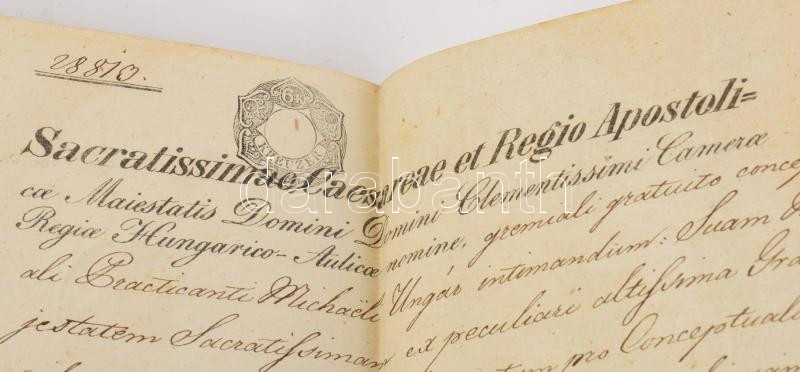 28810.
6 Kr
KREUZER
Sacratissimae Caesareae et Regio Apostoli=
cæ Maiestatis Domini Domini Clementissimi Cameræ
Regiæ Hungarico-Aulicæ nomine, gremiali gratuito concep
ali Practicanti Michaëli Ungár intimandum: Suam
jestatem Sacratissimam ex peculiari altissima Gra
pro Conceptuali
darabanth